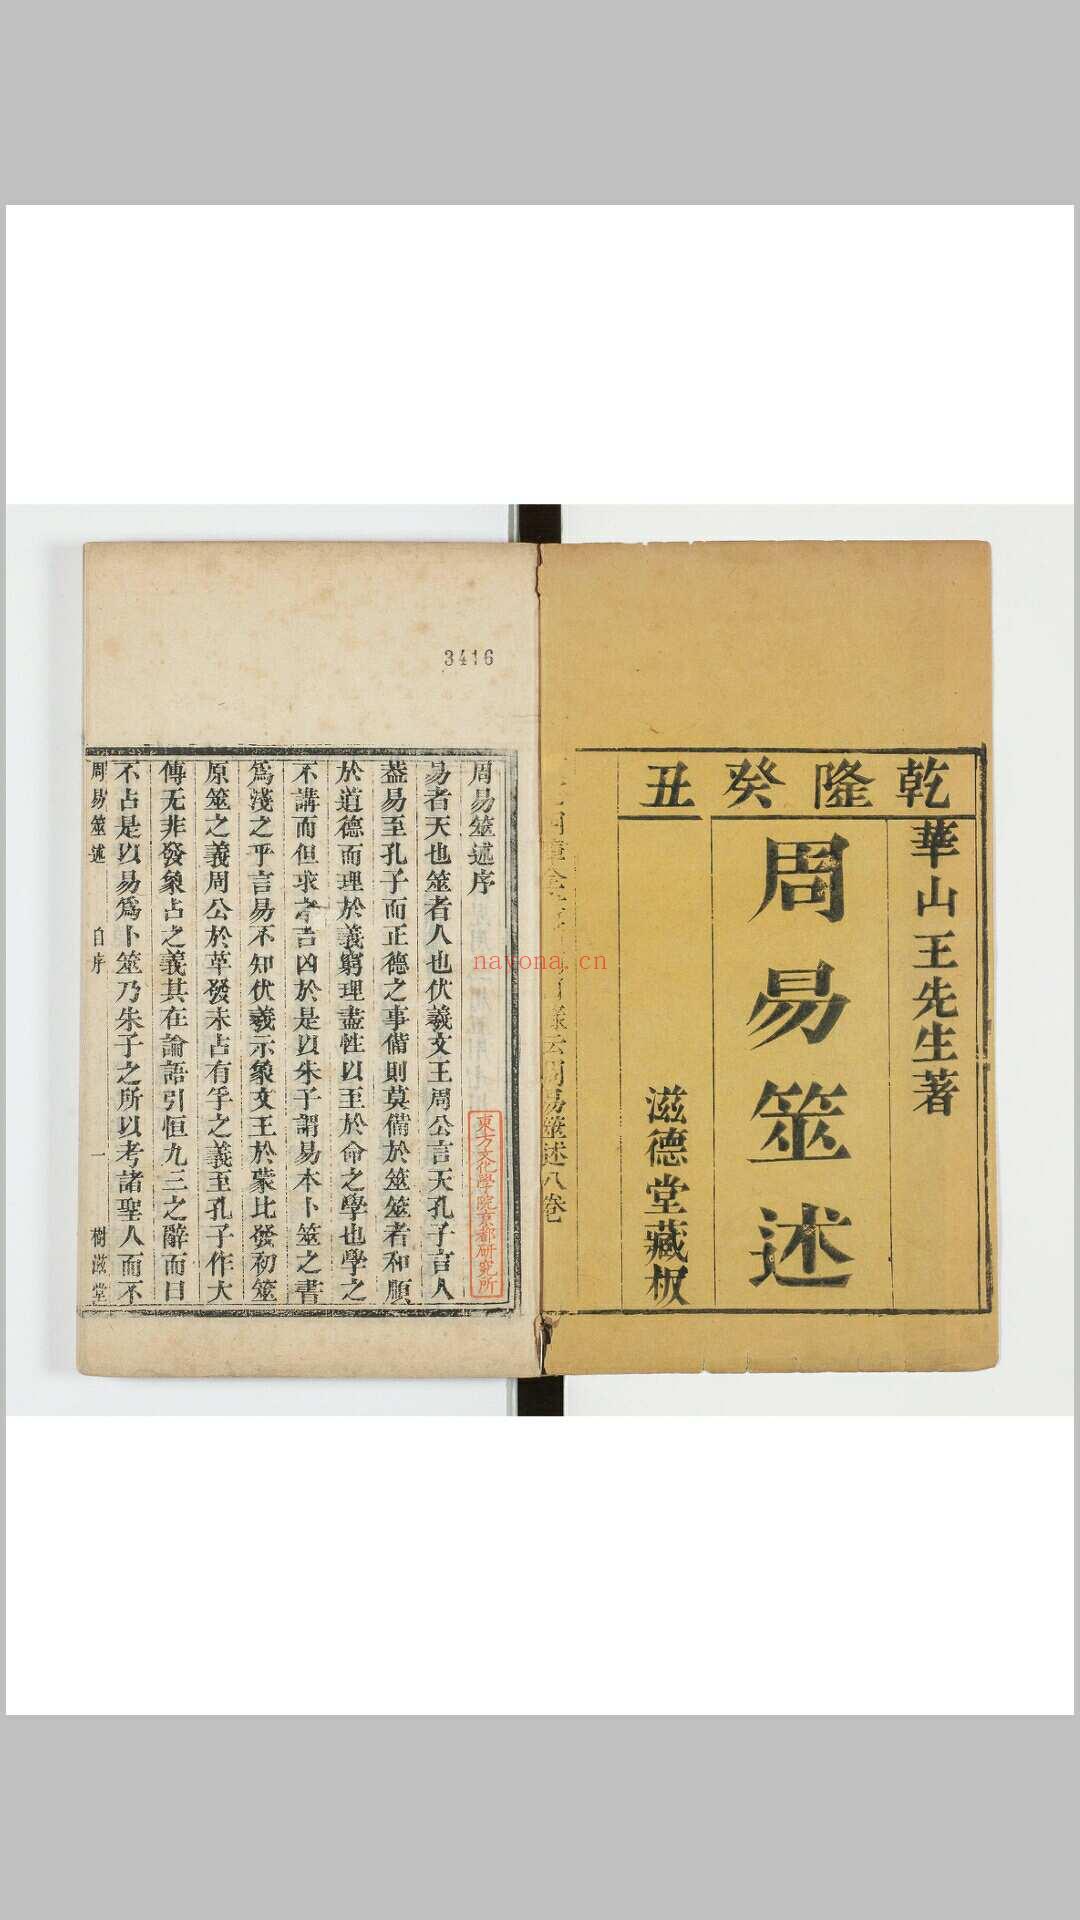 乾隆癸丑
華山王先生著
周易筮述
滋德堂藏板
周易筮述八卷
3416
周易筮述序
易者天也筮者人也伏羲文王周公言天孔子言人
葢易至孔子而正德之事備則莫備於筮筮者和順
於道德而理於義窮理盡性以至於命之學也學之
不講而但求吉凶於是以朱子謂易本卜筮之書
爲淺之乎言易不知伏羲示象文王於蒙比發初筮
原筮之義周公於革發未占有孚之義至孔子作大
傳无非發象占之義其在論語引恒九三之辭而曰
不占是以易爲卜筮乃朱子之所以考諸聖人而不
周易筮述 自序 一 樹滋堂
東方文化學院京都研究所
nayona.cn